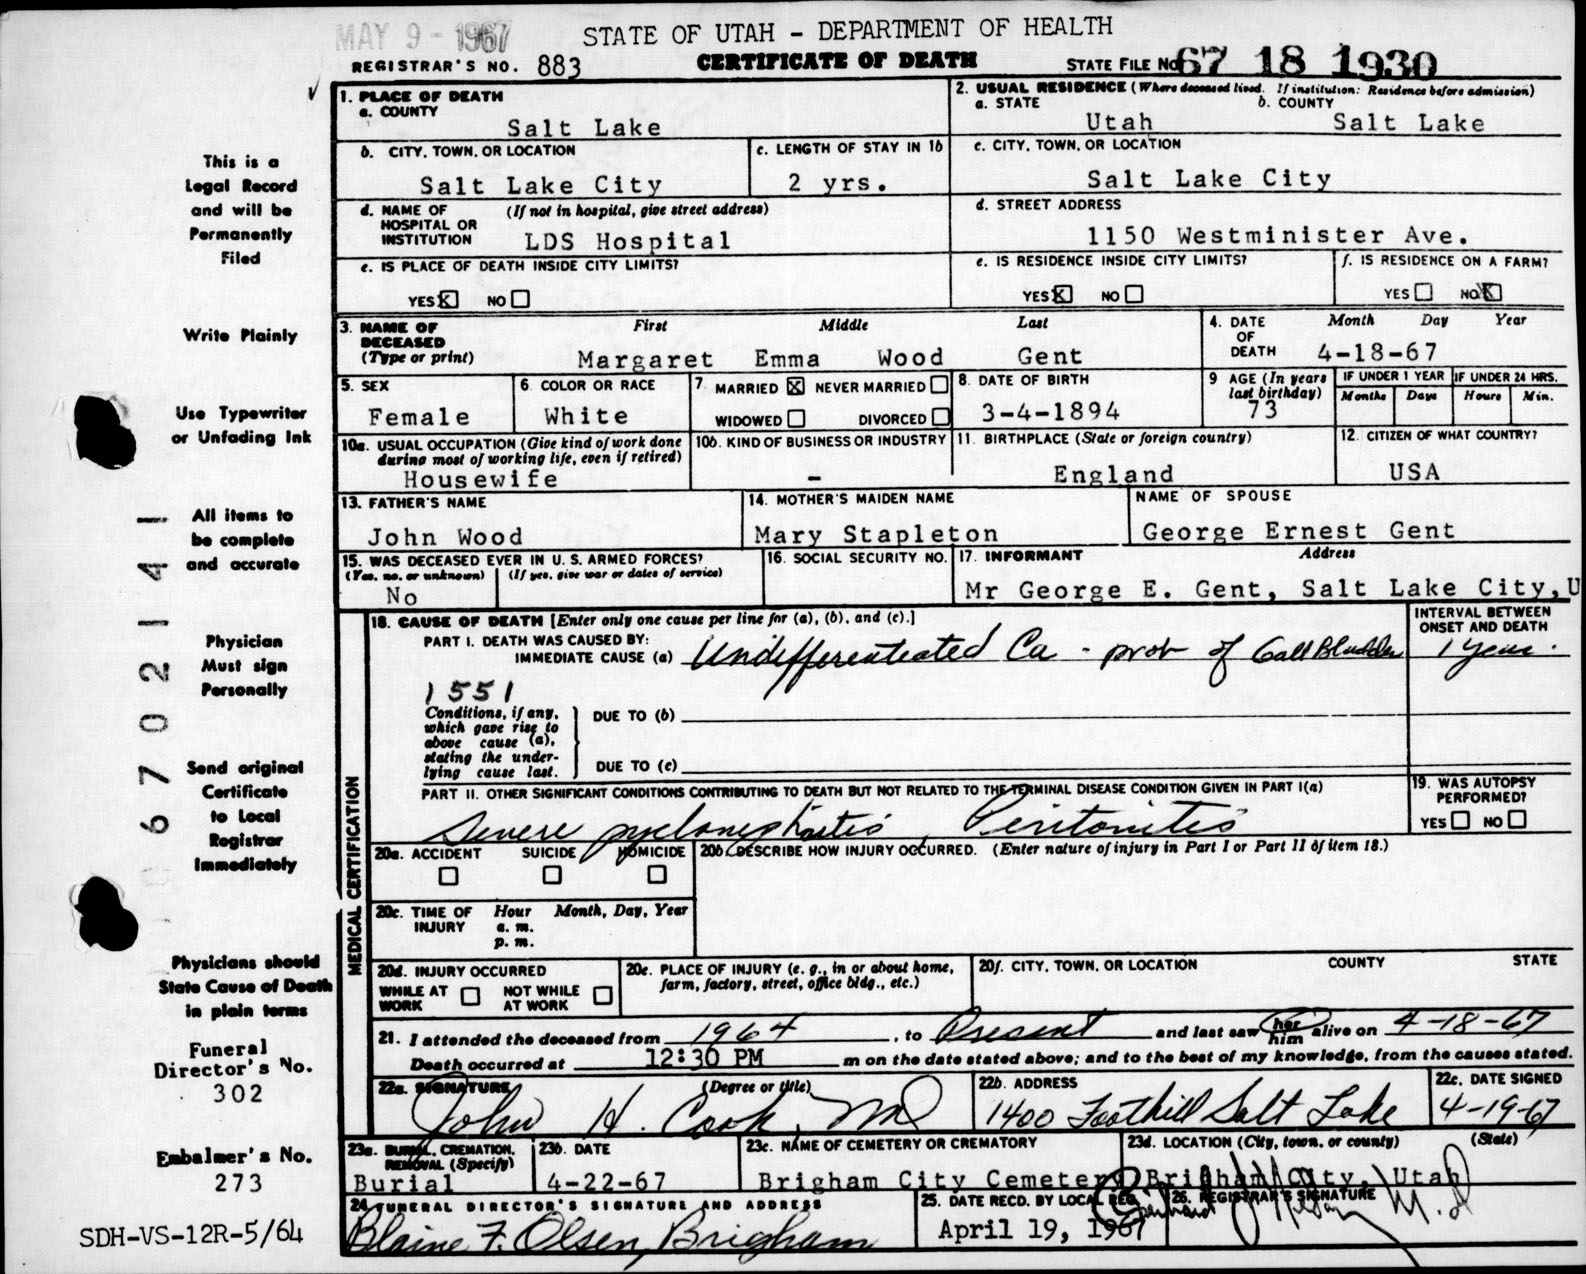 MAY 9 - 1967
STATE OF UTAH - DEPARTMENT OF HEALTH
REGISTRAR'S NO. 883
CERTIFICATE OF DEATH
STATE FILE NO. 67 18 1930
1. PLACE OF DEATH
a. COUNTY
Salt Lake
2. USUAL RESIDENCE (Where deceased lived. If institution: Residence before admission)
a. STATE b. COUNTY
Utah Salt Lake
b. CITY, TOWN, OR LOCATION
Salt Lake City
c. LENGTH OF STAY IN 1b
2 yrs.
c. CITY, TOWN, OR LOCATION
Salt Lake City
d. NAME OF HOSPITAL OR INSTITUTION (If not in hospital, give street address)
LDS Hospital
d. STREET ADDRESS
1150 Westminister Ave.
e. IS PLACE OF DEATH INSIDE CITY LIMITS?
YES X NO
e. IS RESIDENCE INSIDE CITY LIMITS?
YES X NO
f. IS RESIDENCE ON A FARM?
YES NO X
3. NAME OF DECEASED (Type or print)
First Middle Last
Margaret Emma Wood Gent
4. DATE OF DEATH
Month Day Year
4-18-67
5. SEX
Female
6 COLOR OR RACE
White
7. MARRIED X NEVER MARRIED
WIDOWED DIVORCED
8. DATE OF BIRTH
3-4-1894
9 AGE (In years last birthday)
73
IF UNDER 1 YEAR
Months Days
IF UNDER 24 HRS.
Hours Min.
10a. USUAL OCCUPATION (Give kind of work done during most of working life, even if retired)
Housewife
10b. KIND OF BUSINESS OR INDUSTRY
-
11. BIRTHPLACE (State or foreign country)
England
12. CITIZEN OF WHAT COUNTRY?
USA
13. FATHER'S NAME
John Wood
14. MOTHER'S MAIDEN NAME
Mary Stapleton
NAME OF SPOUSE
George Ernest Gent
15. WAS DECEASED EVER IN U. S. ARMED FORCES?
(Yes, no, or unknown) (If yes, give war or dates of service)
No
16. SOCIAL SECURITY NO.
17. INFORMANT Address
Mr George E. Gent, Salt Lake City, U
18. CAUSE OF DEATH [Enter only one cause per line for (a), (b), and (c).]
INTERVAL BETWEEN ONSET AND DEATH
PART I. DEATH WAS CAUSED BY:
IMMEDIATE CAUSE (a) Undiffereateated Ca - prob of Gall Bladder 1 year.
1551
Conditions, if any, which gave rise to above cause (a), stating the underlying cause last.
DUE TO (b)
DUE TO (c)
PART II. OTHER SIGNIFICANT CONDITIONS CONTRIBUTING TO DEATH BUT NOT RELATED TO THE TERMINAL DISEASE CONDITION GIVEN IN PART I(a)
Severe pyelonephritis, Peritonitis
19. WAS AUTOPSY PERFORMED?
YES NO
20a. ACCIDENT SUICIDE HOMICIDE
20b. DESCRIBE HOW INJURY OCCURRED. (Enter nature of injury in Part I or Part II of item 18.)
20c. TIME OF INJURY Hour Month, Day, Year
a. m.
p. m.
20d. INJURY OCCURRED
WHILE AT WORK NOT WHILE AT WORK
20e. PLACE OF INJURY (e. g., in or about home, farm, factory, street, office bldg., etc.)
20f. CITY, TOWN, OR LOCATION COUNTY STATE
21. I attended the deceased from 1964, to Present and last saw her him alive on 4-18-67
Death occurred at 12:30 PM m on the date stated above; and to the best of my knowledge, from the causes stated.
22a. SIGNATURE (Degree or title)
John H. Cook, MD
22b. ADDRESS
1400 Foothill Salt Lake
22c. DATE SIGNED
4-19-67
23a. BURIAL, CREMATION, REMOVAL (Specify)
Burial
23b. DATE
4-22-67
23c. NAME OF CEMETERY OR CREMATORY
Brigham City Cemetery
23d. LOCATION (City, town, or county) (State)
Brigham City, Utah
24 FUNERAL DIRECTOR'S SIGNATURE AND ADDRESS
Blaine F. Olsen, Brigham
25. DATE RECD. BY LOCAL REG.
April 19, 1967
26. REGISTRAR'S SIGNATURE
M.D
MEDICAL CERTIFICATION
This is a
Legal Record
and will be
Permanently
Filed
Write Plainly
Use Typewriter
or Unfading Ink
All items to
be complete
and accurate
Physician
Must sign
Personally
Send original
Certificate
to Local
Registrar
Immediately
Physicians should
State Cause of Death
in plain terms
Funeral
Director's No.
302
Embalmer's No.
273
SDH-VS-12R-5/64
06702141